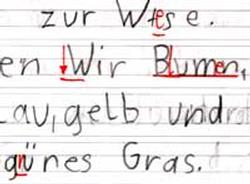 zur Wiese.
en Wir Blumen,
au, gelb und r
grünes Gras.